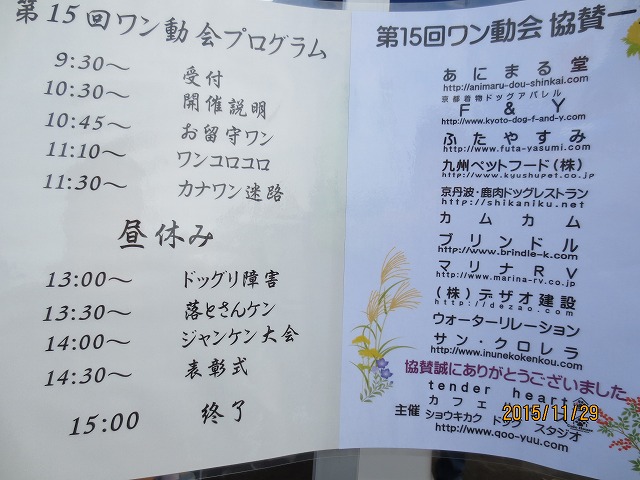 第15回ワン動会プログラム
9:30～ 受付
10:30～ 開催説明
10:45～ お留守ワン
11:10～ ワンコロコロ
11:30～ カナワン迷路
昼休み
13:00～ ドッグリ障害
13:30～ 落とさんケン
14:00～ ジャンケン大会
14:30～ 表彰式
15:00 終了
第15回ワン動会 協賛一
あにまる堂
http://animaru-dou-shinkai.com
京都着物ドッグアパレル
F & Y
http://www.kyoto-dog-f-and-y.com
ふたやすみ
http://www.futa-yasumi.com
九州ペットフード(株)
http://www.kyushupet.co.jp
京丹波・鹿肉ドッグレストラン
http://shikaniku.net
カムカム
ブリンドル
http://www.brindle-k.com
マリナRV
http://www.marina-rv.co.jp
(株)デザオ建設
http://dezao.com
ウォーターリレーション
サン・クロレラ
http://www.inunekokenkou.com
協賛誠にありがとうございました
tender heart
カフェ
主催 ショウキカク ドッグ スタジオ
http://www.qoo-yuu.com
2015/11/29